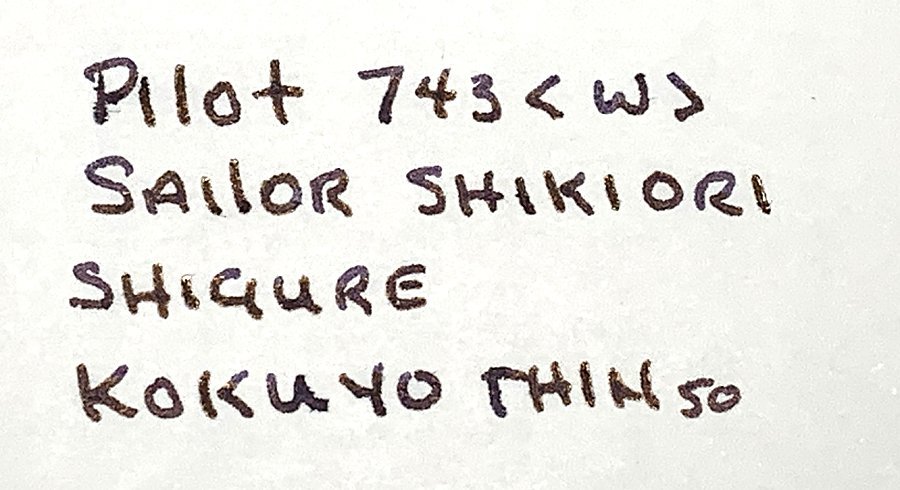 Pilot 743 <W>
SAILOR SHIKIORI
SHIGURE
KOKUYO THIN 50